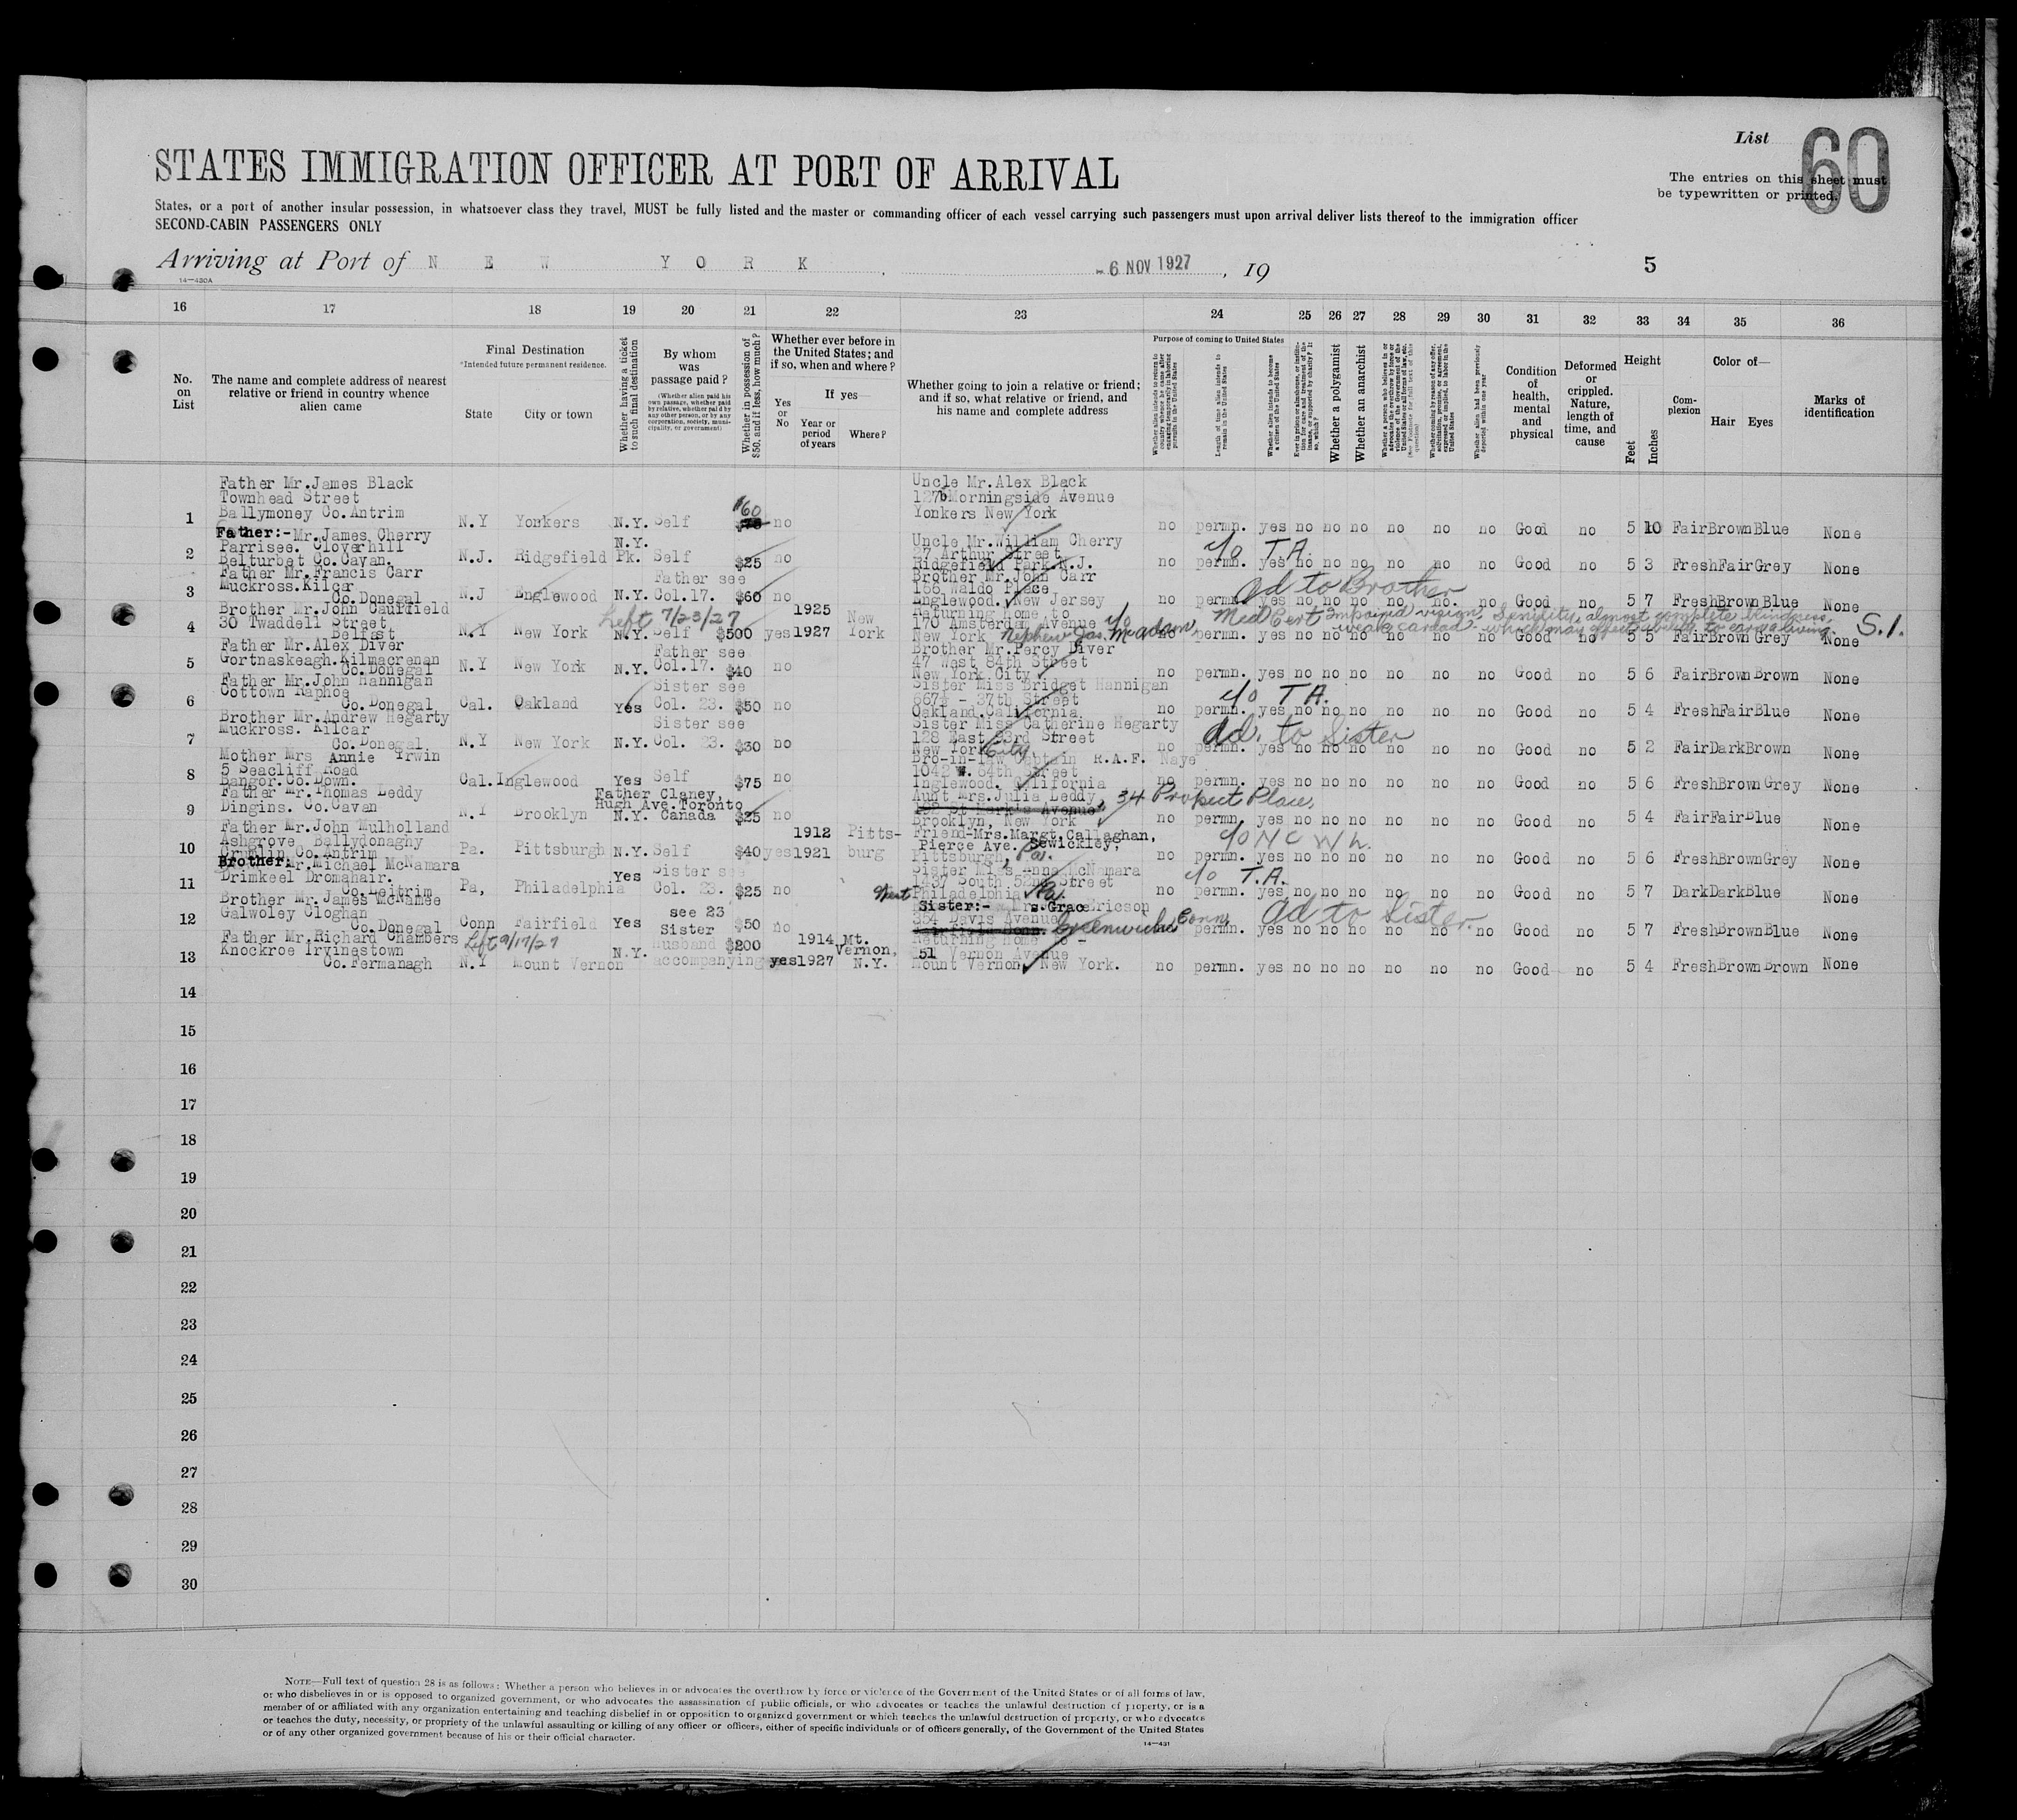 List 60
STATES IMMIGRATION OFFICER AT PORT OF ARRIVAL
The entries on this sheet must
be typewritten or printed.
States, or a port of another insular possession, in whatsoever class they travel, MUST be fully listed and the master or commanding officer of each vessel carrying such passengers must upon arrival deliver lists thereof to the immigration officer
SECOND-CABIN PASSENGERS ONLY
Arriving at Port of N E W Y O R K , -6 NOV 1927 , 19 5
14—430A
16 17 18 19 20 21 22 23 24 25 26 27 28 29 30 31 32 33 34 35 36
No. on List
The name and complete address of nearest relative or friend in country whence alien came
Final Destination
*Intended future permanent residence.
State City or town
Whether having a ticket to such final destination
By whom was passage paid?
(Whether alien paid his own passage, whether paid by relative, whether paid by any other person, or by any corporation, society, municipality, or government)
Whether in possession of $50, and if less, how much?
Whether ever before in the United States; and if so, when and where?
If yes—
Yes or No
Year or period of years
Where?
Whether going to join a relative or friend; and if so, what relative or friend, and his name and complete address
Purpose of coming to United States
Length of time alien intends to remain in the United States
Whether alien intends to become a citizen of the United States
Whether a polygamist
Whether an anarchist
Whether alien had been previously deported within one year
Condition of health, mental and physical
Deformed or crippled. Nature, length of time, and cause
Height
Feet Inches
Complexion
Color of—
Hair Eyes
Marks of identification
Father Mr.James Black
Townhead Street
Ballymoney Co.Antrim
1 N.Y Yonkers N.Y. Self $60 no
Uncle Mr.Alex Black
127b Morningside Avenue
Yonkers New York
no permn. yes no no no no no no Good no 5 10 Fair Brown Blue None
Father:- Mr.James Cherry
Parrisee. Cloverhill
Belturbet Co.Cavan.
2 N.J. Ridgefield Pk. N.Y. Self $25 no
Uncle Mr.William Cherry
27 Arthur Street
Ridgefield Park N.J.
c/o T.A.
no permn. yes no no no no no no Good no 5 3 Fresh Fair Grey None
Father Mr.Francis Carr
Muckross.Kilcar
Co.Donegal
3 N.J Englewood N.Y. Father see Col.17. $60 no
Brother Mr.John Carr
156 Waldo Place
Englewood. New Jersey
ad to Brother
no permn. yes no no no no no no Good no 5 7 Fresh Brown Blue None
Brother Mr.John Caulfield
30 Twaddell Street
Belfast
Left 7/23/27
4 N.Y New York N.Y. Self $500 yes 1925 1927 New York
Returning home to
170 Amsterdam Avenue c/o
New York Nephew Jas. McAdam
Med Cert Impaired vision, Senility, almost complete blindness,
which may affect ability to earn a living. S.I.
no permn. yes no no no no no no Good no 5 5 Fair Brown Grey None
Father Mr.Alex Diver
Gortnaskeagh.Kilmacrenan
Co.Donegal
5 N.Y New York N.Y. Father see Col.17. $40 no
Brother Mr.Percy Diver
47 West 84th Street
New York City
no permn. yes no no no no no no Good no 5 6 Fair Brown Brown None
Father Mr.John Hannigan
Cottown Raphoe
Co.Donegal
6 Cal. Oakland Yes Sister see Col. 23. $50 no
Sister Miss Bridget Hannigan
867½ - 37th Street
Oakland.California.
c/o T A.
no permn. yes no no no no no no Good no 5 4 Fresh Fair Blue None
Brother Mr.Andrew Hegarty
Muckross. Kilcar
Co.Donegal
7 N.Y New York N.Y. Sister see Col. 23. $30 no
Sister Miss Catherine Hegarty
128 East 83rd Street
New York City
ad. to Sister
no permn. yes no no no no no no Good no 5 2 Fair Dark Brown None
Mother Mrs Annie Irwin
5 Seacliff Road
Bangor.Co.Down.
8 Cal. Inglewood Yes Self $75 no
Bro-in-law Captain R.A.F. Naye
1042 W. 64th Street
Inglewood. California
no permn. yes no no no no no no Good no 5 6 Fresh Brown Grey None
Father Mr.Thomas Leddy
Dingins. Co.Cavan
9 N.Y Brooklyn N.Y. Father Claney, Hugh Ave.Toronto Canada $25 no
Aunt Mrs.Julia Leddy,
34 Propect Place,
Brooklyn, New York
no permn. yes no no no no no no Good no 5 4 Fair Fair Blue None
Father Mr.John Mulholland
Ashgrove Ballydonaghy
Crumlin Co.Antrim
10 Pa. Pittsburgh N.Y. Self $40 yes 1912 1921 Pittsburg
Friend-Mrs.Margt.Callaghan,
Pierce Ave. Sewickley,
Pittsburgh, Pa.
no permn. yes no no no no no no Good no 5 6 Fresh Brown Grey None
Brother: Mr.Michael McNamara
Drimkeel Dromahair.
Co.Leitrim
11 Pa, Philadelphia Yes Sister see Col. 23. $25 no
Sister Miss Anna McNamara
1437 South 52nd Street
West Philadelphia Pa.
c/o T.A.
no permn. yes no no no no no no Good no 5 7 Dark Dark Blue None
Brother Mr.James McNamee
Galwoley Cloghan
Co.Donegal
12 Conn Fairfield Yes see 23 Sister $50 no
Sister:- Mrs.Grace Ericson
354 Davis Avenue
Fairfield Conn. Greenwich Conn,
ad to Sister
permn. yes no no no no no no Good no 5 7 Fresh Brown Blue None
Father Mr.Richard Chambers
Knockroe Irvinestown
Co.Fermanagh
Left 9/17/27
13 N.Y Mount Vernon N.Y. Husband accompanying $200 yes 1914 1927 Mt. Vernon, N.Y.
Returning Home to -
51 Vernon Avenue
Mount Vernon, New York.
no permn. yes no no no no no no Good no 5 4 Fresh Brown Brown None
14
15
16
17
18
19
20
21
22
23
24
25
26
27
28
29
30
NOTE—Full text of question 28 is as follows: Whether a person who believes in or advocates the overthrow by force or violence of the Government of the United States or of all forms of law,
or who disbelieves in or is opposed to organized government, or who advocates the assassination of public officials, or who advocates or teaches the unlawful destruction of property, or is a
member of or affiliated with any organization entertaining and teaching disbelief in or opposition to organized government or which teaches the unlawful destruction of property, or who advocates
or teaches the duty, necessity, or propriety of the unlawful assaulting or killing of any officer or officers, either of specific individuals or of officers generally, of the Government of the United States
or of any other organized government because of his or their official character.
14—431